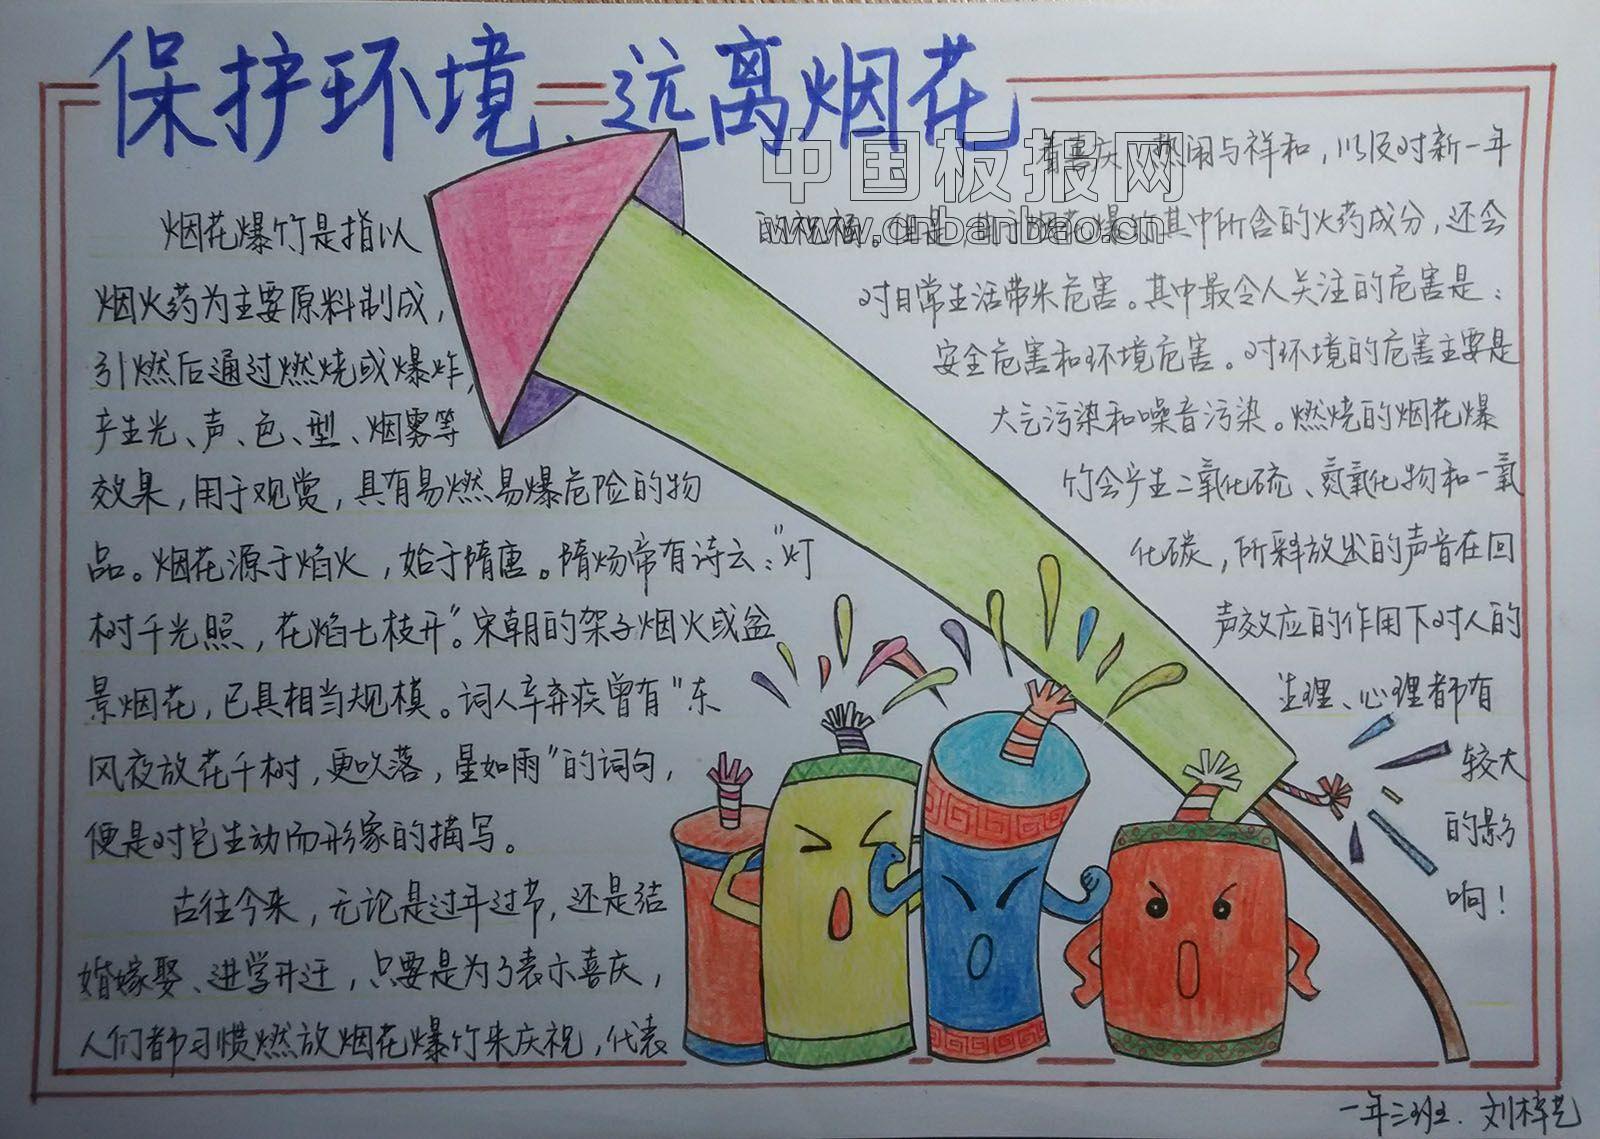 保护环境、远离烟花
烟花爆竹是指以
烟火药为主要原料制成，
引燃后通过燃烧或爆炸，
产生光、声、色、型、烟雾等
效果，用于观赏，具有易燃易爆危险的物
品。烟花源于焰火，始于隋唐。隋炀帝有诗云：“灯
树千光照，花焰七枝开”。宋朝的架子烟火或盆
景烟花，已具相当规模。词人辛弃疾曾有“东
风夜放花千树，更吹落，星如雨”的词句，
便是对它生动而形象的描写。
古往今来，无论是过年过节，还是结
婚嫁娶、进学升迁，只要是为了表示喜庆，
人们都习惯燃放烟花爆竹来庆祝，代表
着喜庆、热闹与祥和，以及对新一年
的祝福。但是，由于烟花爆竹其中所含的火药成分，还会
对日常生活带来危害。其中最令人关注的危害是：
安全危害和环境危害。对环境的危害主要是
大气污染和噪音污染。燃烧的烟花爆
竹会产生二氧化硫、氮氧化物和一氧
化碳，所释放出的声音在回
声效应的作用下对人的
生理、心理都有
较大
的影
响！
一年三班. 刘梓艺
中国板报网
www.cnbanbao.cn